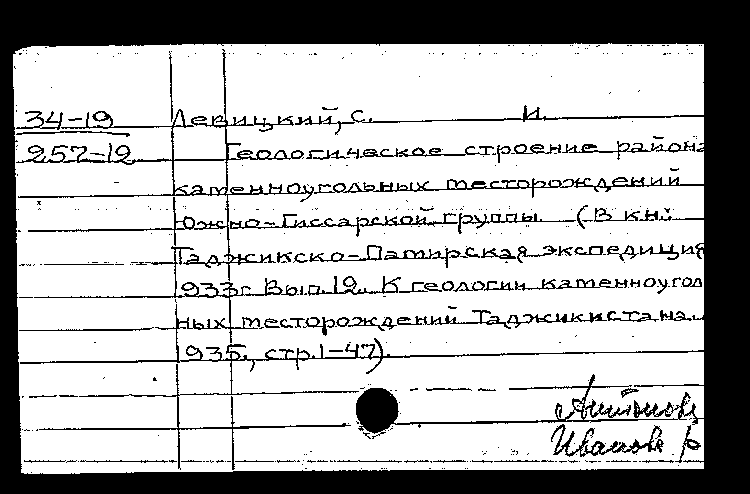 34-19 Левицкий, С. И.
257-12 Геологическое строение района
каменноугольных месторождений
Южно-Гиссарской группы. (В кн:
Таджикско-Памирская экспедиция
1933г. Вып. 12. К геологии каменноугол
ных месторождений Таджикистана.
1935, стр. 1-47).
Антонов
Иванов Р